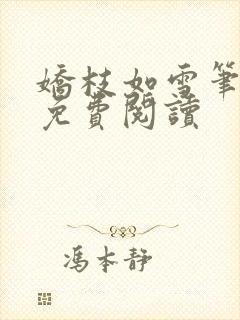 嬌枝如雪筆
免費閱讀
馮本靜